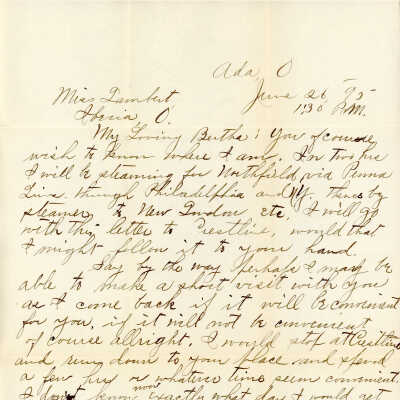 Ada, O
June 26, '95
Miss Lambert, 1:30 P.M.
Iberia, O.
My Loving Bertha: You of course
wish to know where I am. In two hrs
I will be steaming for Northfield, via Penna
Lines through Philadelphia and N.Y. thence by
steamer to New London etc, I will go
with this letter to Crestline, would that
I might follow it to your hand.
Say by the way Perhaps I may be
able to make a short visit with you
as I come back if it will be convenient
for you, if it will not be convenient
of course allright. I would stop at Crestline
and run down to your place and spend
a few hrs or whatever time seem convenient.
I don't know now exactly what day I would get